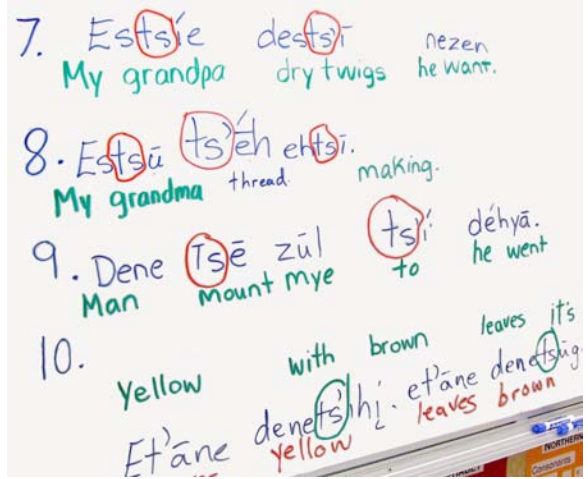 7. Estsíe dests'ī nezen
My grandpa dry twigs he want.
8. Estsū ts'éh ehtsī.
My grandma thread. making.
9. Dene Tsē zūl ts'í déhyā.
Man Mount Mye to he went
10.
Yellow with brown leaves it's
Et'āne denets'ihį. et'āne denetsūg.
yellow leaves brown
NORTHERN
Consonants